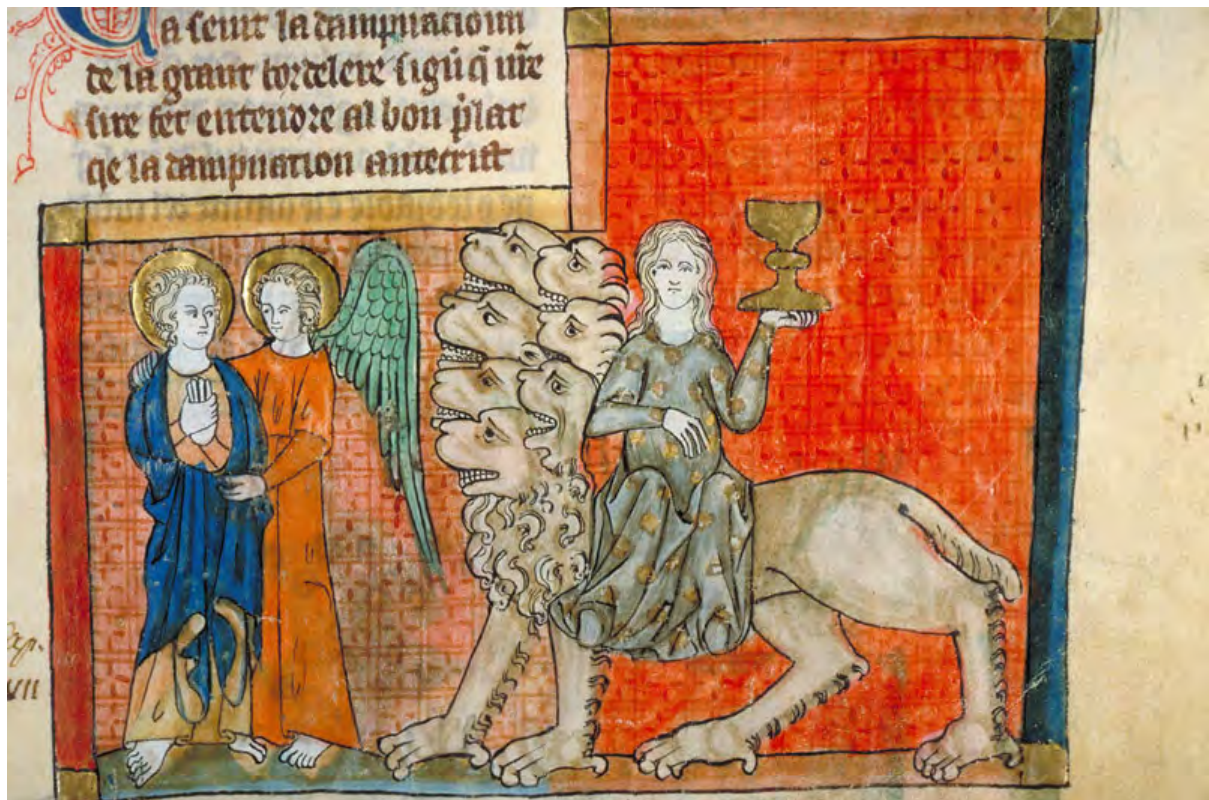 Ca seut la dampnacioun
de la grant bordelere signū q̄ n̄re
sire fet entendre al bon p̄lat
qe la dampnation antecrist
cap.
xvii